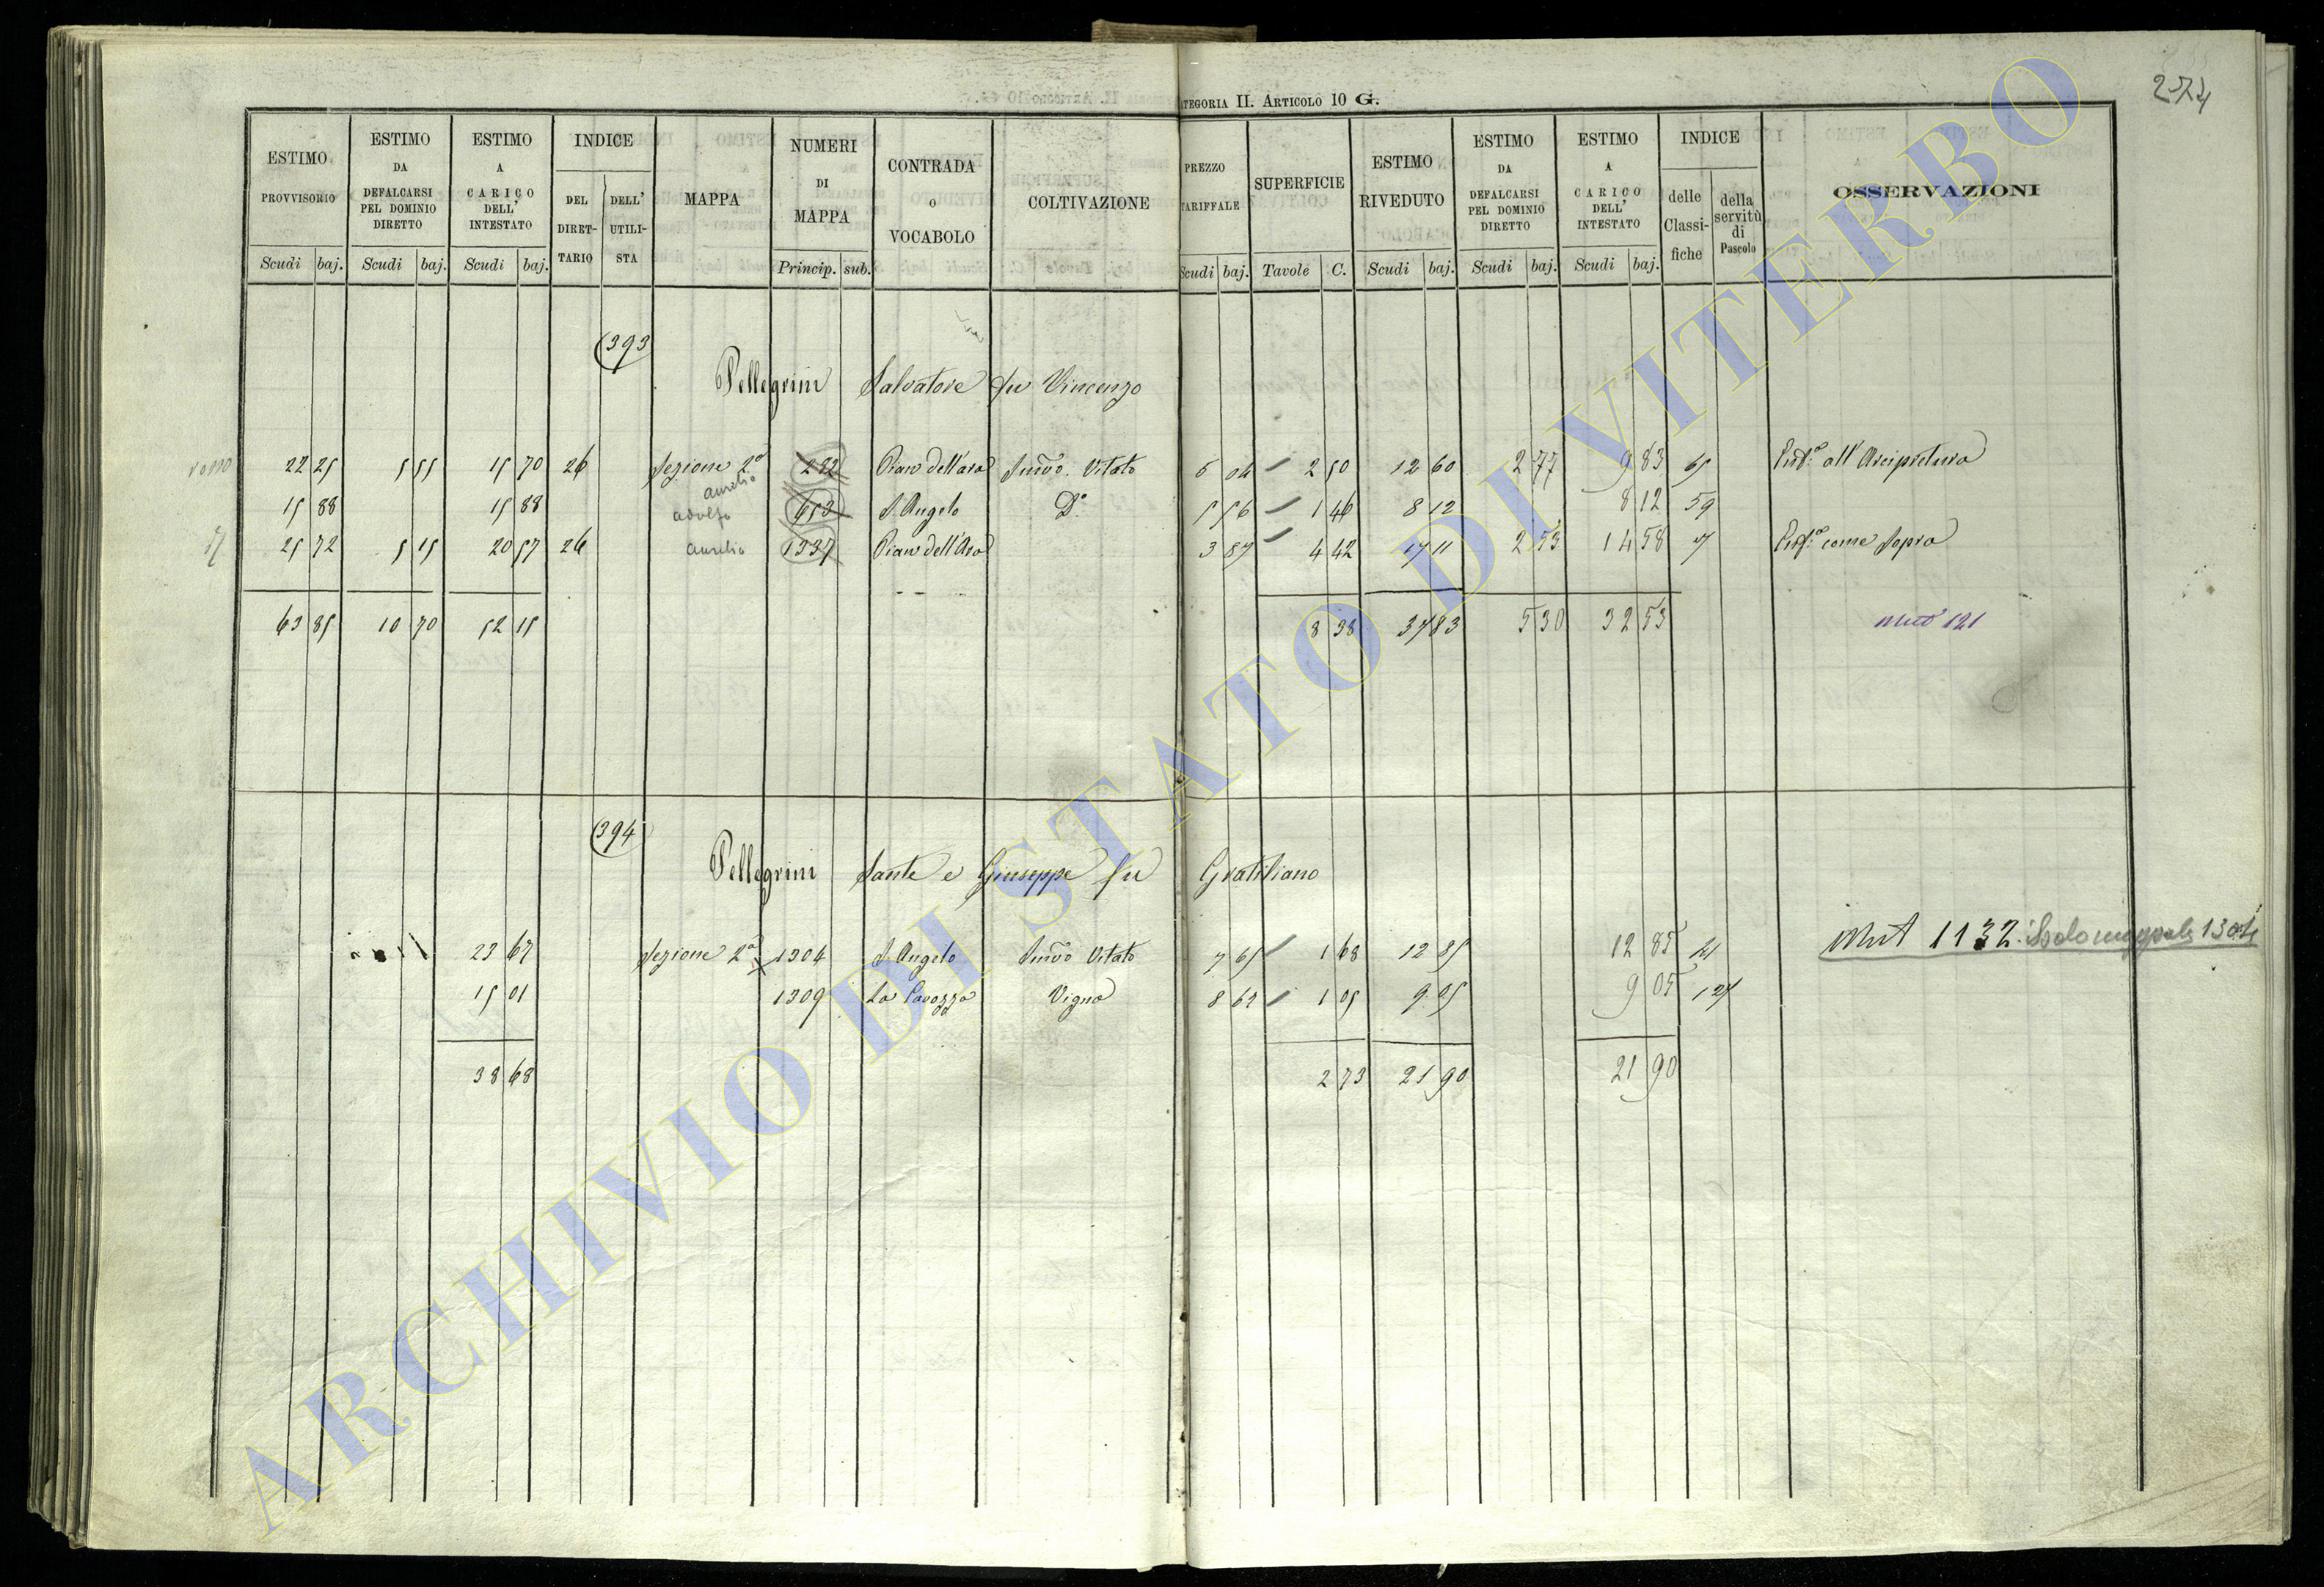 274
CATEGORIA II. ARTICOLO 10 G.
ESTIMO PROVVISORIO Scudi baj.
ESTIMO DA DEFALCARSI PEL DOMINIO DIRETTO Scudi baj.
ESTIMO A CARICO DELL' INTESTATO Scudi baj.
INDICE DEL DIRETTARIO DELL' UTILISTA
MAPPA
NUMERI DI MAPPA Princip. sub.
CONTRADA O VOCABOLO
COLTIVAZIONE
PREZZO TARIFFALE Scudi baj.
SUPERFICIE Tavole C.
ESTIMO RIVEDUTO Scudi baj.
ESTIMO DA DEFALCARSI PEL DOMINIO DIRETTO Scudi baj.
ESTIMO A CARICO DELL' INTESTATO Scudi baj.
INDICE delle Classifiche della servitù di Pascolo
OSSERVAZIONI
393
Pellegrini Salvatore fu Vincenzo
22 25 5 55 15 70 26 Sezione 2a 232 Pian dell'ara Semvo. Vitato 5 04 2 50 12 60 2 77 9 83 Enfca. all'Arcipretura
aurelio
15 88 15 88 adolfo 653 S. Angelo Do. 5 56 1 46 8 12 8 12 59
25 72 5 15 20 57 26 aurelio 1337 Pian dell'Ara 3 87 4 42 17 11 2 53 14 58 7 Enfca. come sopra
63 85 10 70 52 15 8 38 37 83 5 30 32 53 Mutò 121
394
Pellegrini Sante e Giuseppe fu Gratiliano
23 67 Sezione 2a 1304 S. Angelo Semvo Vitato 7 65 1 68 12 85 12 85 21 Mut 1132. Solo mappale 1304
15 01 1309 La Cavozza Vigna 8 62 1 05 9 05 9 05 121
38 68 2 73 21 90 21 90
ARCHIVIO DI STATO DI VITERBO